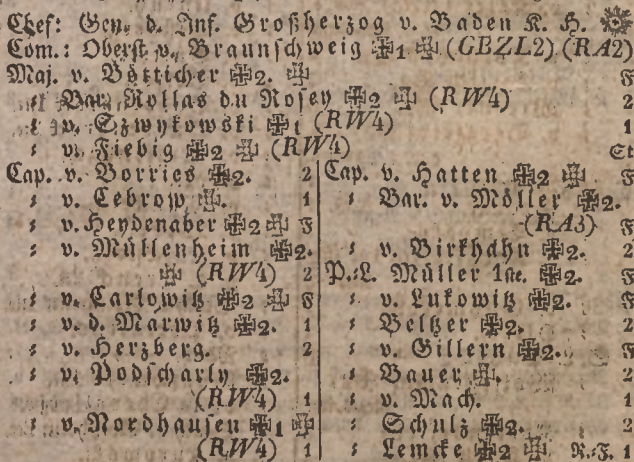 Chef: Gen. d. Inf. Großherzog v. Baden K. H.
Com.: Oberst v. Braunschweig ✠1 ✠ (GBZL2) (RA2)
Maj. v. Bötticher ✠2. ✠ F
: Bar. Rollas du Rosey ✠2 ✠ (RW4) 2
: v. Szwykowski ✠1 (RW4) 1
: v. Fiebig ✠2 ✠ (RW4) Et
Cap. v. Borries ✠2. 2
: v. Cebrow ✠. 1
: v. Heydenaber ✠2 ✠ F
: v. Müllenheim ✠2.
✠ (RW4) 2
: v. Carlowitz ✠2 ✠ F
: v. d. Marwitz ✠2. 1
: v. Herzberg. 2
: v. Podscharly ✠2.
(RW4) 1
: v. Nordhausen ✠1 ✠
(RW4) 1
Cap. v. Hatten ✠2 ✠ F
: Bar. v. Möller ✠2.
(RA3) F
: v. Birkhahn ✠2. 2
P.:L. Müller 1ste. ✠2. F
: v. Lukowitz ✠2. F
: Beltzer ✠2. 2
: v. Gillern ✠2. F
: Bauer ✠. 2
: v. Mach. 1
: Schulz ✠2. 2
: Lemcke ✠2 ✠ R.:F. 1